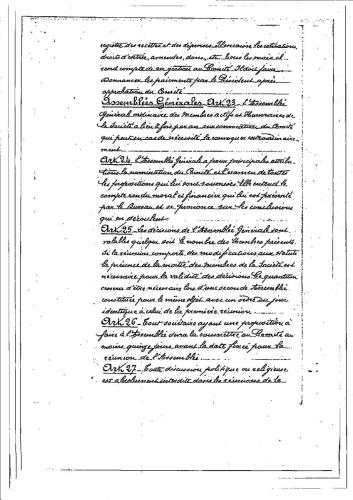 registre des recettes et des dépenses. Il encaisse les cotisations,
droits d'entrée, amendes, dons, etc. Tous les mois il
rend compte de sa gestion au Comité. Il doit faire
ordonnancer les paiements par le Président après
approbation du Comité
Assemblées Générales - Art 23 - L'Assemblée
Générale ordinaire des Membres actifs et Honoraires de
la Société a lieu 2 fois par an sur convocation du Comité
qui peut en cas de nécessité la convoquer extraordinaire
ment
Art 24 - L'Assemblée Générale a pour principales attribu
tions la nomination du Comité et l'examen de toutes
les propositions qui lui sont soumises. Elle entend le
compte rendu moral et financier qui lui est présenté
par le Bureau et se prononce sur les conclusions
qui en découlent
Art 25 - Les décisions de l'Assemblée Générale sont
valables quelque soit le nombre des Membres présents
Si la réunion comporte des modifications aux Statuts
la présence de la moitié des membres de la Société est
nécessaire pour la validité des décisions. Ce quantum
cessera d'être nécessaire lors d'une seconde Assemblée
constituée pour le même objet avec un ordre du jour
identique à celui de la première réunion
Art 26 - Tout sociétaire ayant une proposition à
faire à l'Assemblée devra la soumettre au Comité au
moins quinze jours avant la date fixée pour la
réunion de l'Assemblée
Art 27 - Toute discussion politique ou religieuse
est absolument interdite dans les réunions de la